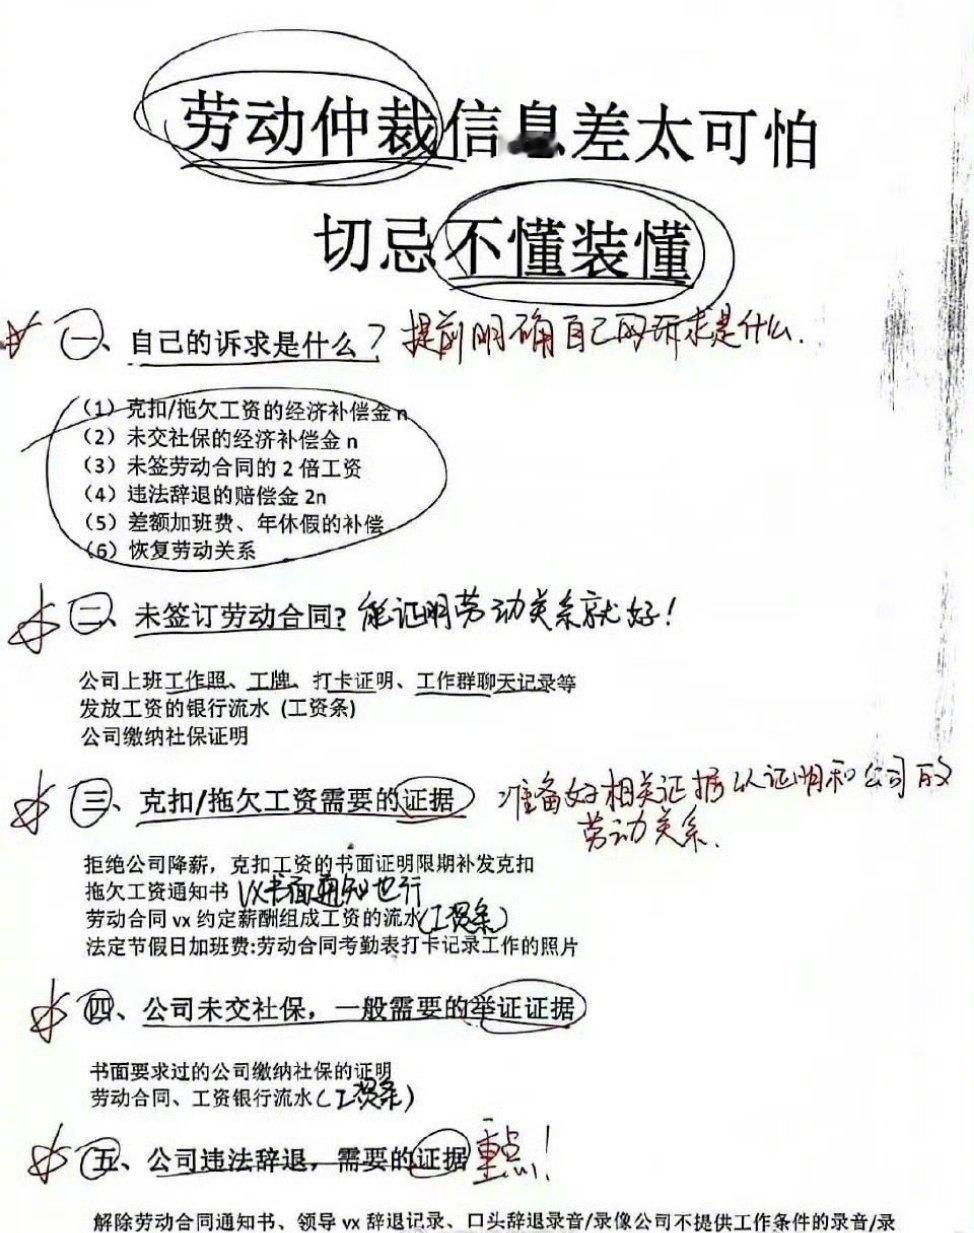 劳动仲裁信息差太可怕
切忌不懂装懂
一、自己的诉求是什么？提前明确自己的诉求是什么.
（1）克扣/拖欠工资的经济补偿金 n
（2）未交社保的经济补偿金 n
（3）未签劳动合同的 2 倍工资
（4）违法辞退的赔偿金 2n
（5）差额加班费、年休假的补偿
（6）恢复劳动关系
二、未签订劳动合同？能证明劳动关系就好！
公司上班工作照、工牌、打卡证明、工作群聊天记录等
发放工资的银行流水 (工资条)
公司缴纳社保证明
三、克扣/拖欠工资需要的证据 准备好相关证据以证明和公司的
劳动关系.
拒绝公司降薪，克扣工资的书面证明限期补发克扣
拖欠工资通知书 VX书面通知也行
劳动合同 vx 约定薪酬组成工资的流水(工资条)
法定节假日加班费:劳动合同考勤表打卡记录工作的照片
四、公司未交社保，一般需要的举证证据
书面要求过的公司缴纳社保的证明
劳动合同、工资银行流水(工资条)
五、公司违法辞退，需要的证据 重点！
解除劳动合同通知书、领导 vx 辞退记录、口头辞退录音/录像公司不提供工作条件的录音/录